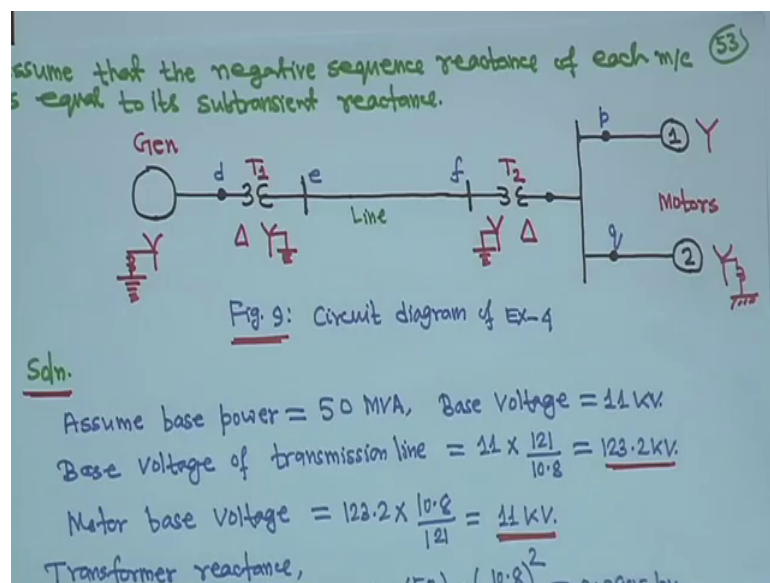 ssume that the negative sequence reactance of each m/c 53
s equal to its subtransient reactance.
Gen
d T1 e f T2 p 1
Line
Motors
q 2
Δ Δ
Fig. 9: Circuit diagram of EX-4
Soln.
Assume base power = 50 MVA, Base Voltage = 11 KV.
Base Voltage of transmission line = 11 × 121/10.8 = 123.2 KV.
Motor base voltage = 123.2 × 10.8/121 = 11 KV.
Transformer reactance,
(10.8)²